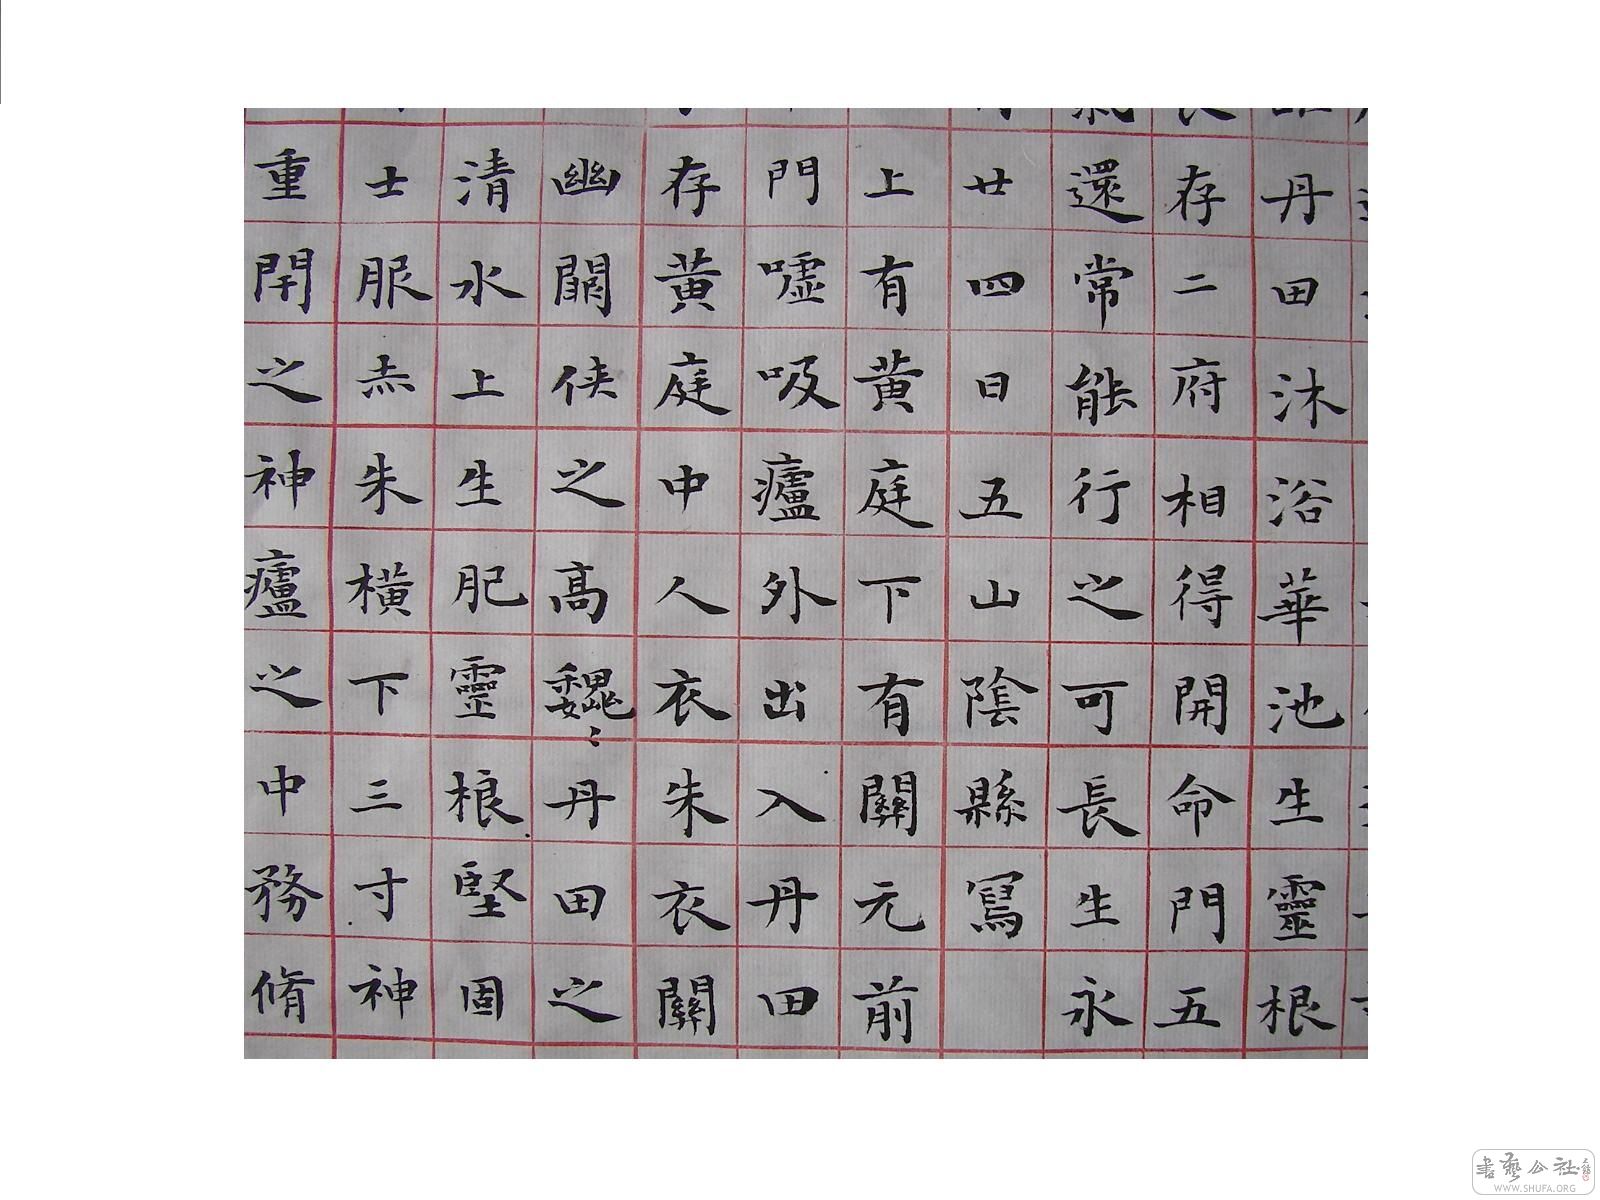 丹田沐浴華池生靈根
存二府相得開命門五
還常能行之可長生永
廿四日五山陰縣寫
上有黃庭下有關元前
門噓吸廬外出入丹田
存黃庭中人衣朱衣關
幽闕俠之高巍〻丹田之
清水上生肥靈根堅固
士服赤朱橫下三寸神
重閉之神廬之中務脩
書藝公社
WWW.SHUFA.ORG